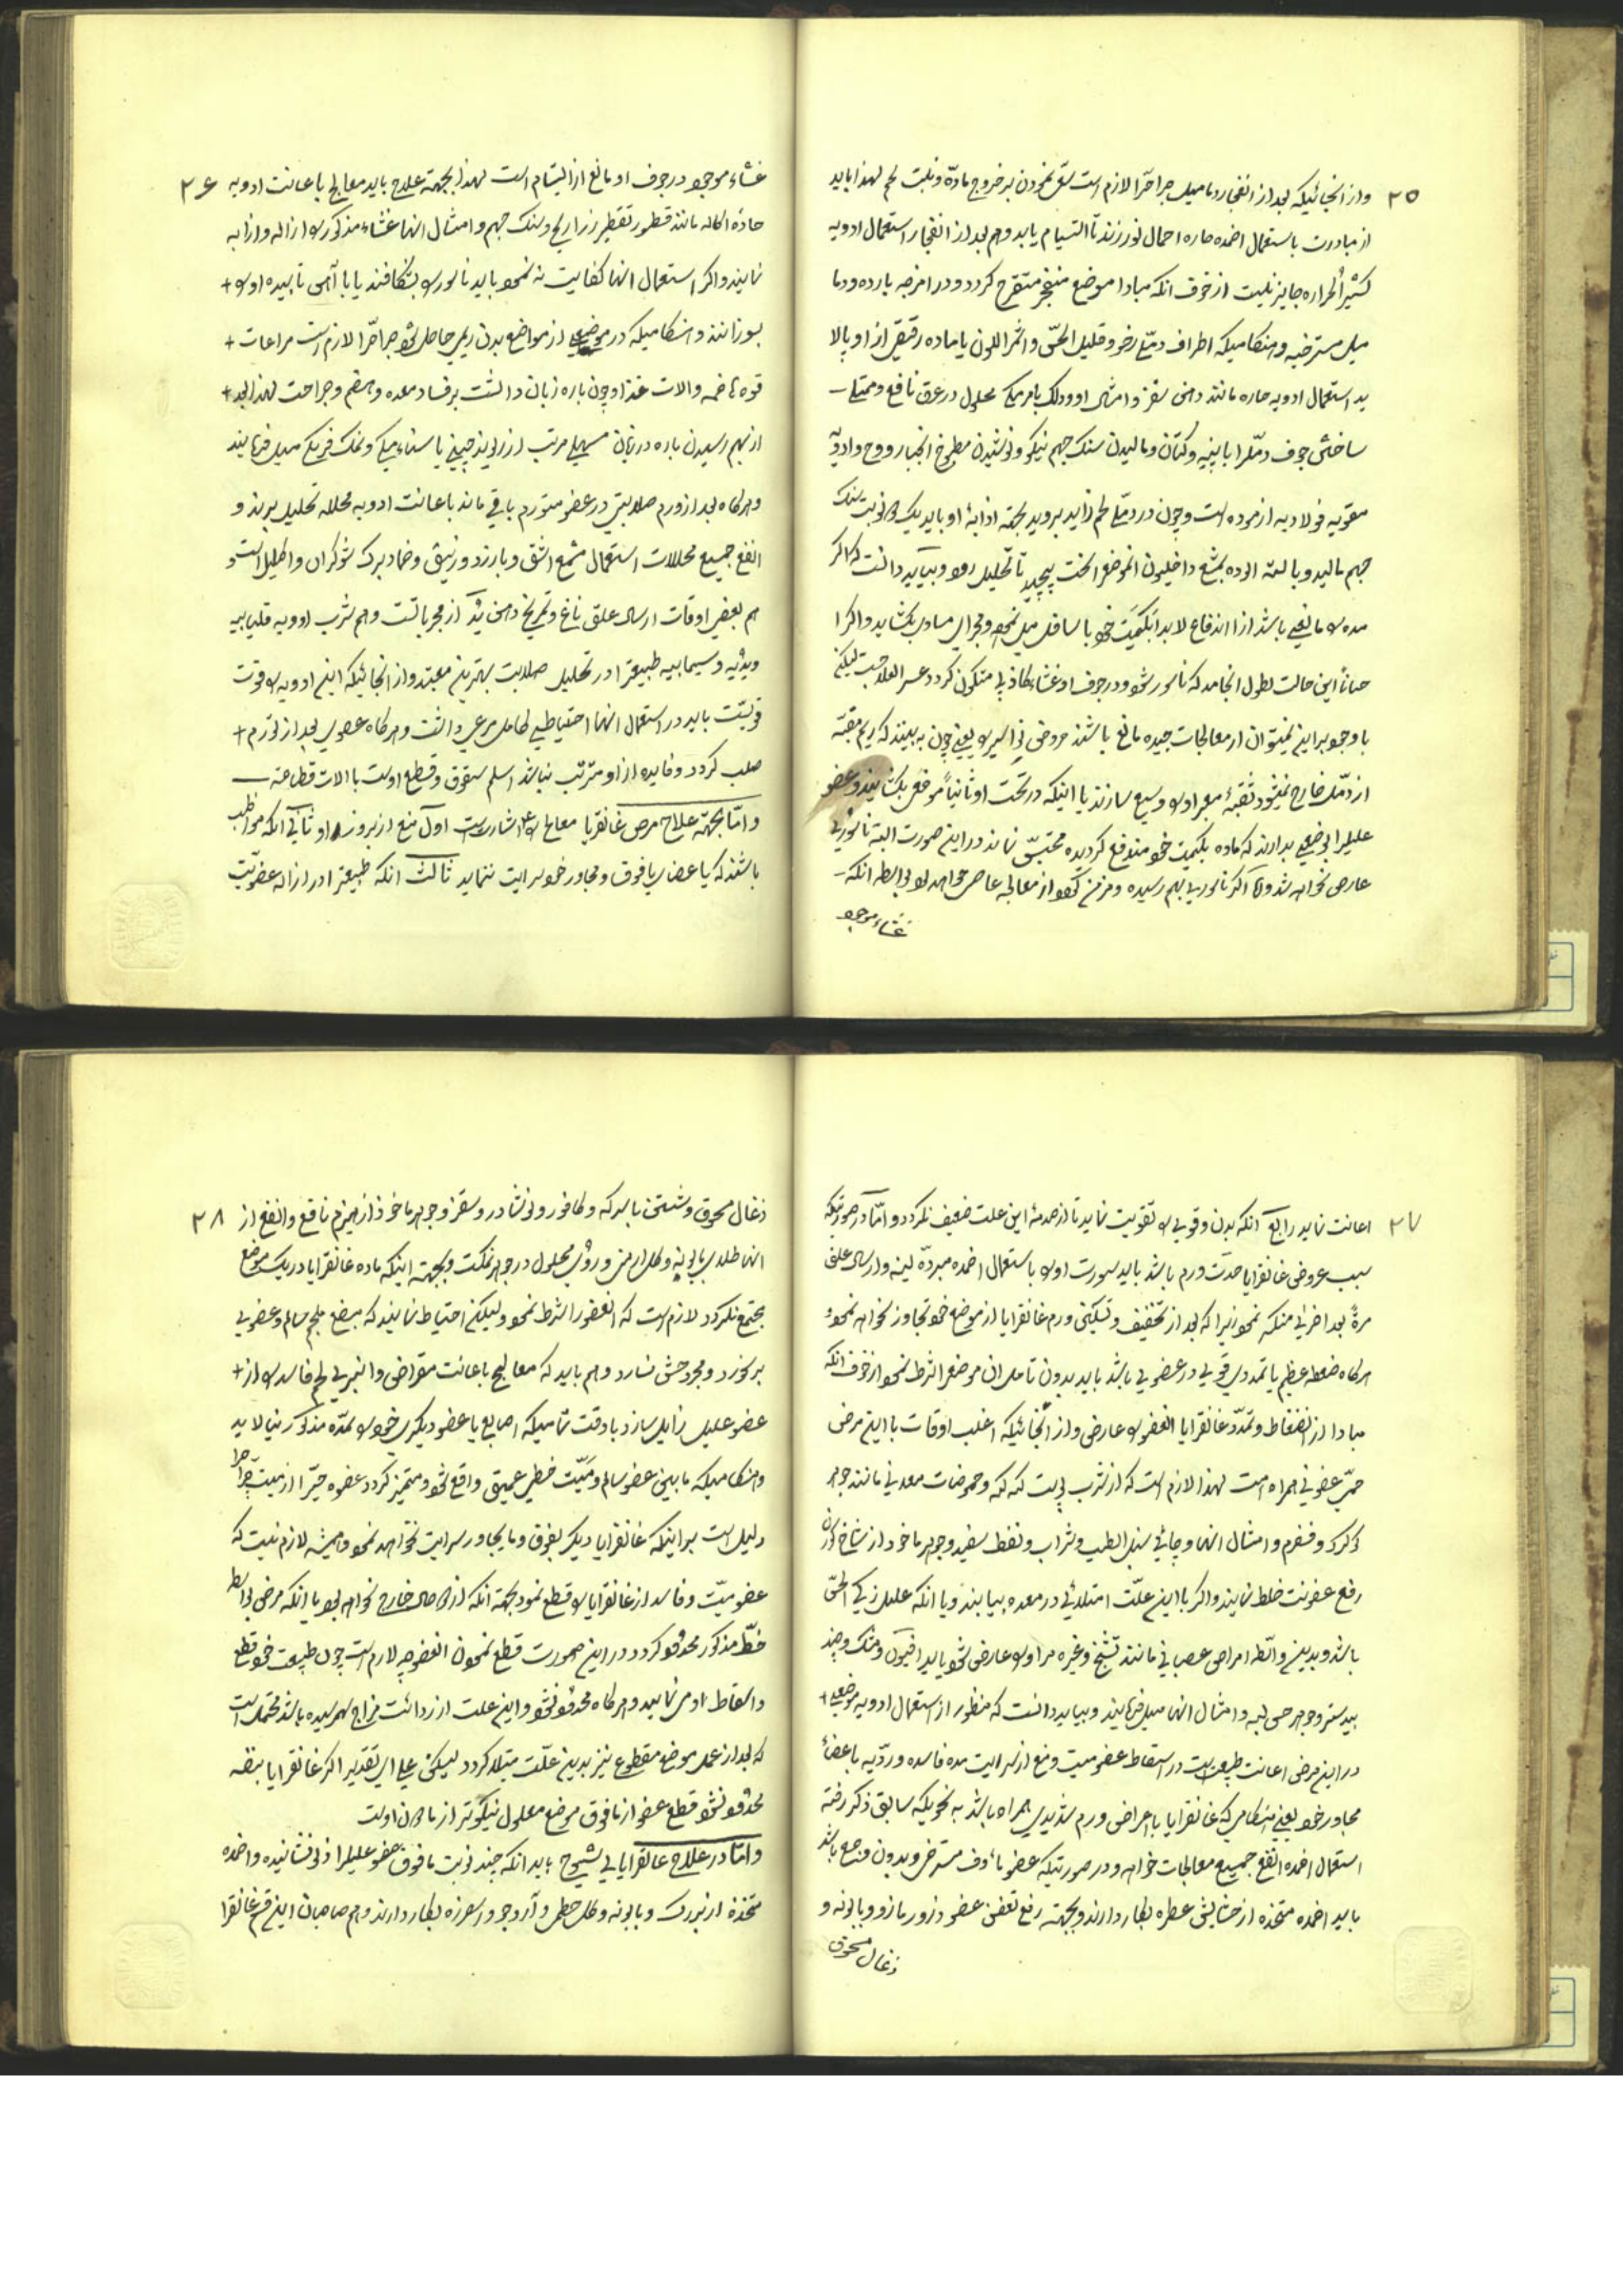 ۲۵
واز انجائیکه بعد از انفجار دمامیل جراحرا لازم است سعی نمودن بر خروج مادّه و نبات لحم لهذا باید
از مبادرت باستعمال اضمده حاره اهمال نورزند تا التیام یابد و هم بعد از انفجار استعمال ادویه
کثیر الحراره جایز نیست از خوف آنکه مبادا موضع منفجر متقرح کردد و در امزجه بارده و دما
میل مسترخیه و هنکامیکه اطراف دمّل رخو و قلیل الحسّ و احمر اللون یا ماده رقیق از او پالا
ید استعمال ادویه حاره مانند دهن سقز و امثال او محلول در عرق نافع و ممتلی
ساختن جوف دمّلرا با پنبه و کتان و مالیدن سنک جهنم نیکو و نوشیدن مطبوخ انجبار و وج و ادویه
مقویه فولادیه ازموده است و چون در دمّل لحم زاید بروید بجهة اذابۀ او باید یک دو نوبت سنک
جهنم مالید و با لتّه الوده بمشمع داخلیون انموضع را سخت پیچید تا تحلیل رود و بباید دانست که اکر
مده را مانعی باشد از اندفاع لابد بکمیت خود باسافل میل نموده و مجرای مساوی بکشاید و اکر ا
حیاناً این حالت بطول انجامد که ناسور شود و در جوف او غشاء کاذبی متکون کردد عسر العلاجست لیکن
با وجود براین نمیتوان از معالجات جیده مانع باشند عروض نواسیر را یعنی چون به بینند که ریم بتمه
از دمّل خارج نمیشود ثقبۀ معبر او را وسیع سازند یا اینکه در تحت او ثانیاً موضعی بکشایند و عضو
علیلرا بوضعی بدارند که ماده بکمیت خود مندفع کردیده محتبس نماند در اینصورت البته ناسوری
عارض نخواهد شد و اما اکر ناسوری بهم رسیده و مزمن کردد از معالجه عاصی خواهد بود بواسطه انکه
غشاء موجود
۲۶
غشاء موجود در جوف او مانع از التیام است لهذا بجهة علاج باید معالج باعانت ادویه
حادّه اکاله مانند قطور تقطیر زراریح و سنک جهنم و امثال انها غشاء مذکور را ازاله و اذابه
نمایند و اکر استعمال انها کفایت نه نمود باید ناسور را بشکافند یا با آهن تابیده او را
بسوزانند و هنکامیکه در موضعی از مواضع بدن ریم حاصل شود جراحرا لازم است مراعات
قوه هاضمه و الات غذا و چون باره زبان دالست بر فساد معده و هضم و جراحت لهذا بعد
از بهم رسیدن باره در زبان مسهلی مرتب از ریوند چینی یا سناء مکی و نمک فرنکی میل فرمایند
و هرکاه بعد از ورم صلابتی در عضو متورم باقی ماند باعانت ادویه محلله تحلیل برند و
انفع جمیع محللات استعمال مشمع اشق و بارزد و زیبق و ضماد برک شوکران و اکلیل است و
هم بعضی اوقات ارسال علق نافع و تمریخ دهن ید از مجرباتست و هم شرب ادویه قلیابیه
ویدیه و سیمابیه طبیعترا در تحلیل صلابت بهترین معینند و از انجائیکه این ادویه را قوت
قویتست باید در استعمال انها احتیاطی کامل مرعی داشت و هرکاه عضوی بعد از تورم
صلب کردد و فایده از او مترتب نباشد اسلم شقوق و قطع اوست با الات قطاعه
و امّا بجهة علاج مرض غانقرایا معالج را اشارتست اول منع از بروز او ثانی آنکه مواظب
باشند که باعضای مافوق و مجاور خود سرایت ننماید ثالث انکه طبیعترا در ازاله عضو میّت
۲۷
اعانت نماید رابع آنکه بدن و قوی را تقویت نماید تا از صدمۀ این علت ضعیف نکردد و امّا در صورتیکه
سبب عروض غانقرایا حدّت ورم باشد باید سورت او را باستعمال اضمده مبردّه لینه و ارسال علق
مرةً بعد اخری منکسر نمود زیرا که بعد از تخفیف و تسکین ورم غانقرایا از موضع خود تجاوز نخواهد نمود و
هرکاه ضغطه عظیم یا تمددی قوی در عضوی باشد باید بدون تامل ان موضع را شرط نمود از خوف انکه
مبادا از انضغاط و تمدّد غانقرایا انعضو را عارض و از آنجائیکه اغلب اوقات با این مرض
حمّی عضونی همراه است لهذا لازم است که از شرب پوست کنه کنه و حموضات معدنی مانند جوهر
کوکرد و فسفرم و امثال انها و چائی سنبل الطیب و شراب و نفط سفید و جوهر ماخوذ از شاخ کوزن
رفع عضونت خلط نمایند و اکر با این علّت امتلائی در معده بیابند و یا انکه علیل زکی الحسّ
باشد و بدین واسطه امراض عصبانی مانند تشنج و غیره مر او را عارض شود باید افیون و مشک و جند
بیدستر و جوهر حصی لبه و امثال انها میل فرمایند و بباید دانست که منظور از استعمال ادویه موضعی
در این مرض اعانت طبیعتست در اسقاط عضو میت و منع از سرایت مده فاسده و ردّیه باعضاء
مجاور خود یعنی هنکامی که غانقرایا با امراض ورم شدیدی همراه باشد به نحویکه سابق ذکر رفته
استعمال اضمده انفع جمیع معالجات خواهد و در صورتیکه عضو ماؤف مسترخی و بدون وجع باشد
باید اضمده متخذه از حشایش عطره بکار دارند و بجهة رفع تعفن عضو ذرور مازو و بابونه و
ذغال محروق
۲۸
ذغال محروق و شستن با سرکه و کافور و نوشادر و سقز و جوهر ماخوذ از هیزم نافع و انفع از
انها طلای بابونه و کل ارمنی و روی محلول در جوهر نمکست و بجهة اینکه ماده غانقرایا در یک موضع
مجتمع نکردد لازم است که انعضو را شرط نمود ولیکن احتیاط نمایند که مبضع بلحم سالم و عضوی
برنخورد و مجروحش نسازد و هم باید که معالج باعانت مقراض و انبری لحم فاسد را از
عضو علیل زایل سازد با دقت تمامیکه اصابع یا عضو دیکری خود را بمدّه مذکور نیالاید
و هنکامیکه مابین عضو سالم و میّت خطی عمیق واقع شود و متمیز کردد عضو حیّ از میّت جراحرا
دلیل است براینکه غانقرایا دیکر بفوق و ما یجاور سرایت نخواهد نمود و همیشه لازم نیست که
عضو میّت و فاسد از غانقرایا را قطع نمود بجهة آنکه از خارج خواهد بود یا انکه مرض بواسطه
خطّ مذکور محدود کردد در این صورت قطع نمودن انعضو چه لازم است چون طبیعت خود قطع
و اسقاط او می نماید و هرکاه محدود نشود و این علت از ردائت مزاج بهم رسیده باشد محتمل است
که بعد از عمل موضع مقطوع نیز بدین علّت مبتلا کردد لیکن علی ای تقدیر اکر غانقرایا بنفسه
محدود نشود قطع عضو از مافوق موضع معلول نیکوتر از مادون اوست
و امّا در علاج غانقرایای شیوخ باید انکه چند نوبت مافوق عضو علیلرا زلو نشانیده و اضمده
متخذه از بزرک و بابونه و کل خطمی و آرد جو و اسفرزه بکار دارند و هم صاحبان این قسم غانقرا